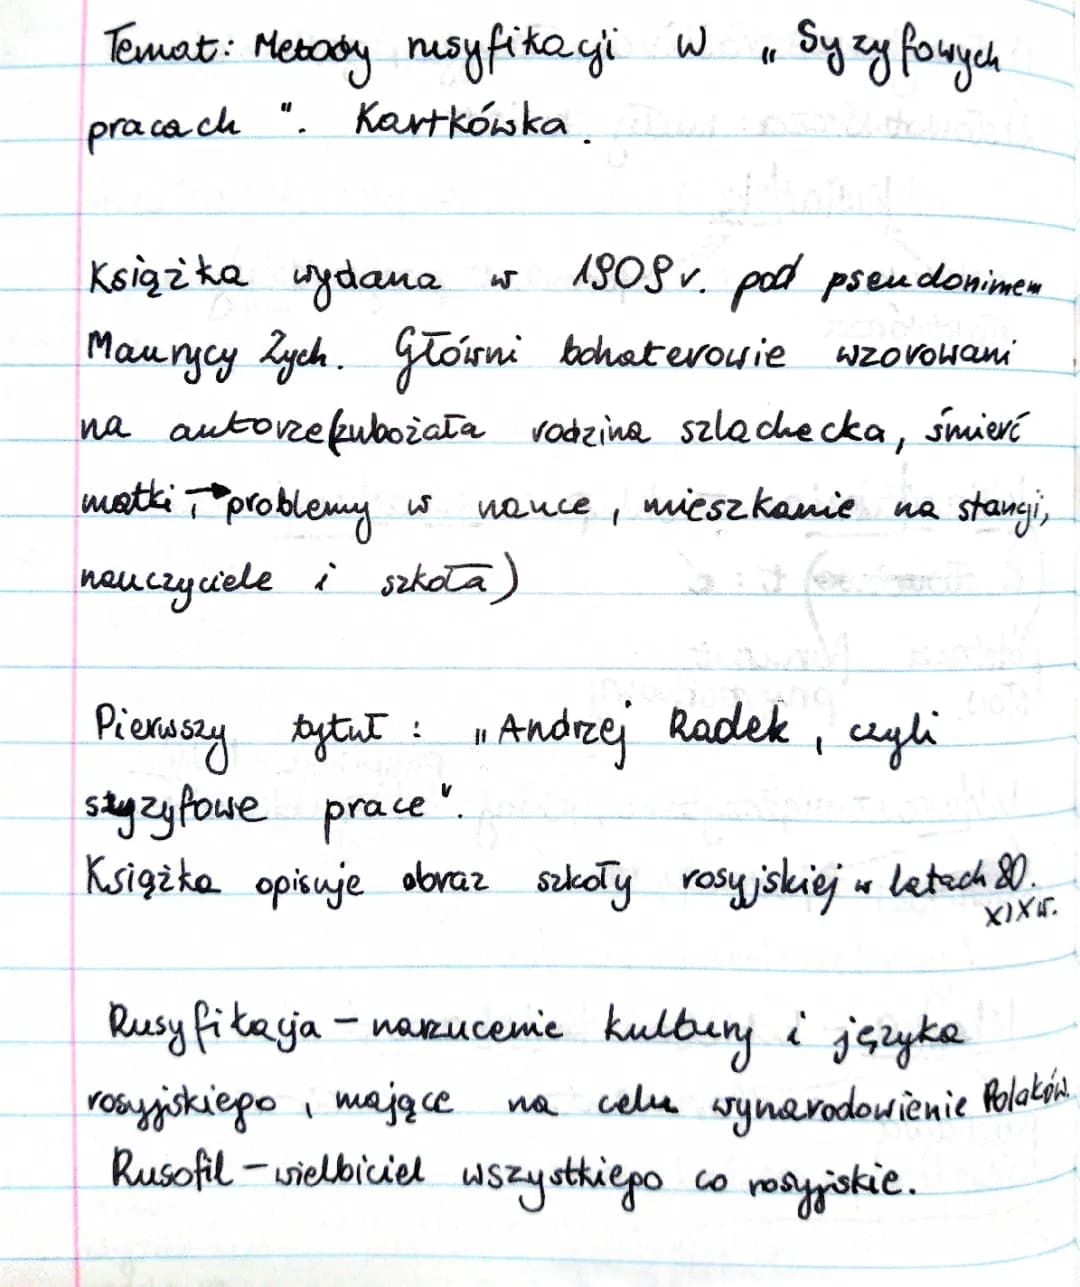 Temat: Metody rusyfikacji w „Syzyfowych
pracach". Kartkówka.
Książka wydana w 1909 r. pod pseudonimem
Maurycy Zych. Główni bohaterowie wzorowani
na autorze (zubożała rodzina szlachecka, śmierć
matki, → problemy w nauce, mieszkanie na stancji,
nauczyciele i szkoła)
Pierwszy tytuł: „Andrzej Radek, czyli
syzyfowe prace".
Książka opisuje obraz szkoły rosyjskiej w latach 80.
XIX w.
Rusyfikacja – narzucenie kultury i języka
rosyjskiego, mające na celu wynarodowienie Polaków.
Rusofil – wielbiciel wszystkiego co rosyjskie.